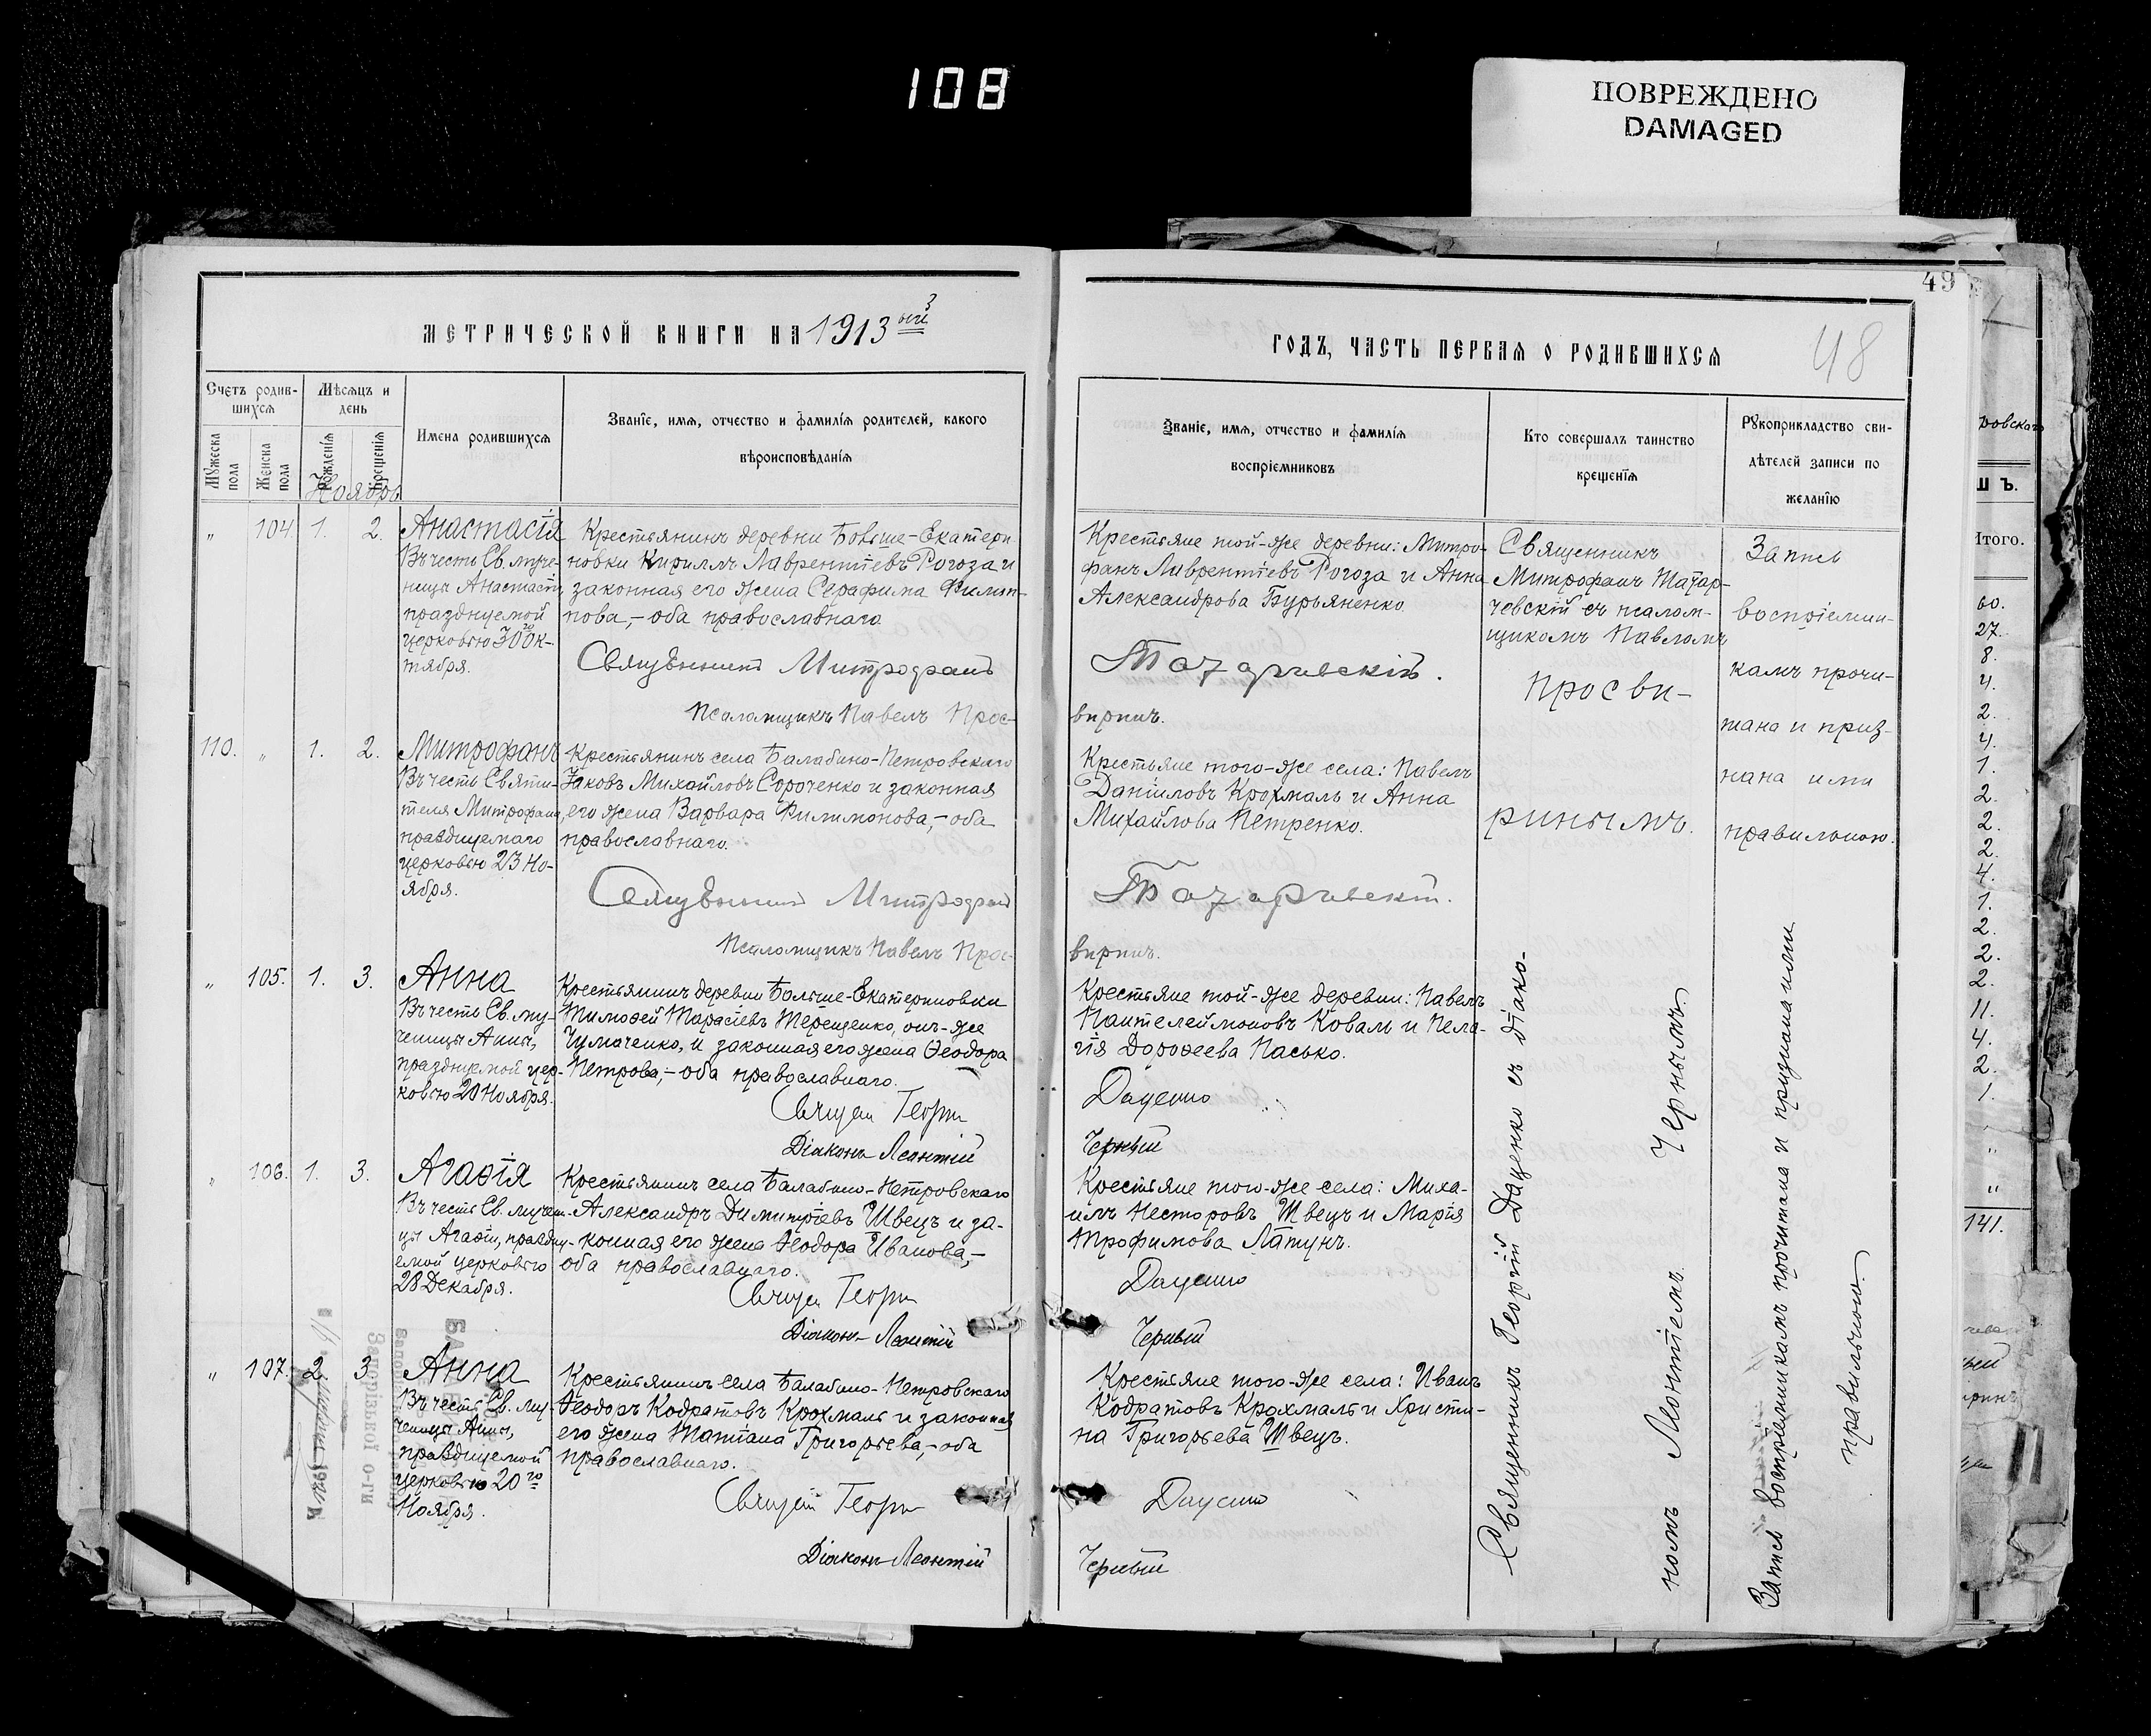 108
ПОВРЕЖДЕНО
DAMAGED
49
48
МЕТРИЧЕСКОЙ КНИГИ НА 1913 ый
ГОДЪ, ЧАСТЬ ПЕРВАЯ О РОДИВШИХСЯ
Счетъ родив-
шихся
Мѣсяцъ и
день
Мужеска пола
Женска пола
Рожденія
Крещенія
Имена родившихся
Званіе, имя, отчество и фамилія родителей, какого
вѣроисповѣданія
Званіе, имя, отчество и фамилія
воспріемниковъ
Кто совершалъ таинство
крещенія
Рукоприкладство сви-
дѣтелей записи по
желанію
Ноябрь
„ 104. 1. 2.
Анастасія
Въ честь Св. муче-
ницы Анастасіи,
празднуемой
церковью 30го Ок-
тября.
Крестьянинъ деревни Больше-Екатери-
новки Кириллъ Лаврентіевъ Рогоза и
законная его жена Серафима Филип-
пова,- оба православнаго
Священникъ Митрофанъ
Псаломщикъ Павелъ Прос-
Крестьяне той-же деревни: Митро-
фанъ Лаврентіевъ Рогоза и Анна
Александрова Бурьяненко
Священникъ
Митрофанъ
съ псалом-
щикомъ Павломъ
Просви-
ринымъ.
Запись
воспріемни-
камъ прочи-
тана и приз-
нана ими
правильною.
вирнинъ.
110. „ 1. 2.
Митрофанъ
Въ честь Святи-
теля Митрофана,
празднуемаго
церковью 23 Но-
ября.
Крестьянинъ села Балабино-Петровскаго
Іаковъ Михайловъ Сороченко и законная
его жена Варвара Филимонова,- оба
православнаго.
Священникъ Митрофанъ
Псаломщикъ Павелъ Прос-
Крестьяне того-же села: Павелъ
Даніиловъ Крохмаль и Анна
Михайлова Петренко.
„ 105. 1. 3.
Анна
Въ честь Св. му-
ченицы Анны,
празднуемой цер-
ковью 20 Ноября.
Крестьянинъ деревни Больше-Екатериновки
Тимоѳей Тарасіевъ Терещенко, онъ-же
Чумаченко, и законная его жена Ѳеодора
Петрова,- оба православнаго.
Георгій
Діаконъ Леонтій
Крестьяне той-же деревни: Павелъ
Пантелеймоновъ Коваль и Пела-
гія Дороѳеева Пасько.
Даценко
Черный
„ 106. 1. 3.
Агаѳія
Въ честь Св. мучени-
цы Агаѳіи, праздну-
емой церковью
28 Декабря.
Крестьянинъ села Балабино-Петровскаго
Александръ Димитріевъ Швецъ и за-
конная его жена Ѳеодора Иванова,-
оба православнаго.
Георгій
Діаконъ Леонтій
Крестьяне того-же села: Миха-
илъ Несторовъ Швецъ и Марія
Трофимова Лапунъ.
Даценко
Черный
„ 107. 2. 3.
Анна
Въ честь Св. му-
ченицы Анны,
празднуемой
церковью 20го
Ноября.
Крестьянинъ села Балабино-Петровскаго
Ѳеодоръ Кодратовъ Крохмаль и законная
его жена Татіана Григорьева,- оба
православнаго.
Георгій
Діаконъ Леонтій
Крестьяне того-же села: Иванъ
Кодратовъ Крохмаль и Христи-
на Григорьева Швецъ.
Даценко
Черный
Священникъ Георгій Даценко съ діако-
номъ Леонтіемъ Чернымъ.
Запись воспріемникамъ прочитана и признана ими
правильною.
ровскаго
Ш Ъ.
Итого.
60.
27.
8.
4.
2.
4.
1.
2.
2.
2.
4.
1.
2.
2.
2.
11.
4.
2.
1.
„
„
141.